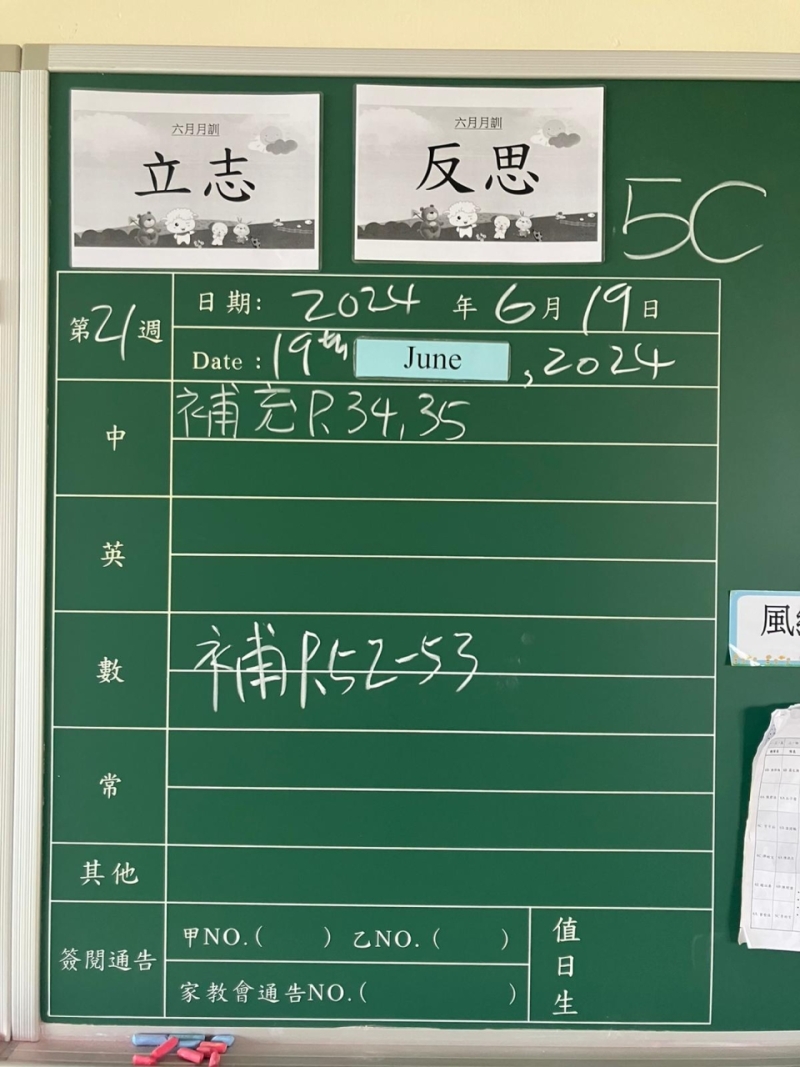 六月月訓
立志
六月月訓
反思
5C
第21週
日期: 2024 年 6月 19日
Date : 19th June , 2024
中
補充 P.34,35
英
數
補 P.52-53
常
其他
簽閱通告
甲NO.( ) 乙NO.( )
家教會通告NO.( )
值日生
風